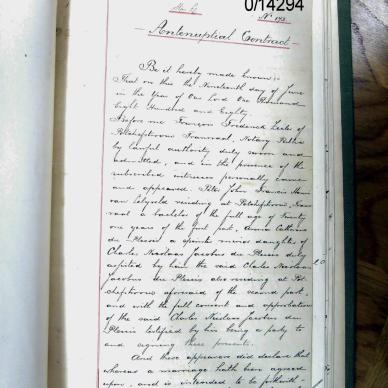 0/14294
No 193
Antenuptial Contract
Be it hereby made known:
That on this the Nineteenth day of June
in the Year of Our Lord One Thousand
Eight Hundred and Eighty
Before me François Frederick
Potchefstroom Transvaal, Notary Public
by lawful authority duly sworn and
admitted, and in the presence of the
subscribed witnesses personally came
and appeared. Peter John Francis
van residing at Potchefstroom, Trans
vaal a bachelor of the full age of Twenty
one years of the first part, Anna Catharina
du Plessis a spinster minor daughter of
Charles Nicolaas Jacobus du Plessis duly
assisted by him the said Charles Nicolaas
Jacobus du Plessis also residing at Pot
chefstroom aforesaid of the second part,
and with the full consent and approbation
of the said Charles Nicolaas Jacobus du
Plessis testified by his being a party to
and signing these presents.
And these appearers did declare that
whereas a marriage hath been agreed
upon, and is intended to be forthwith